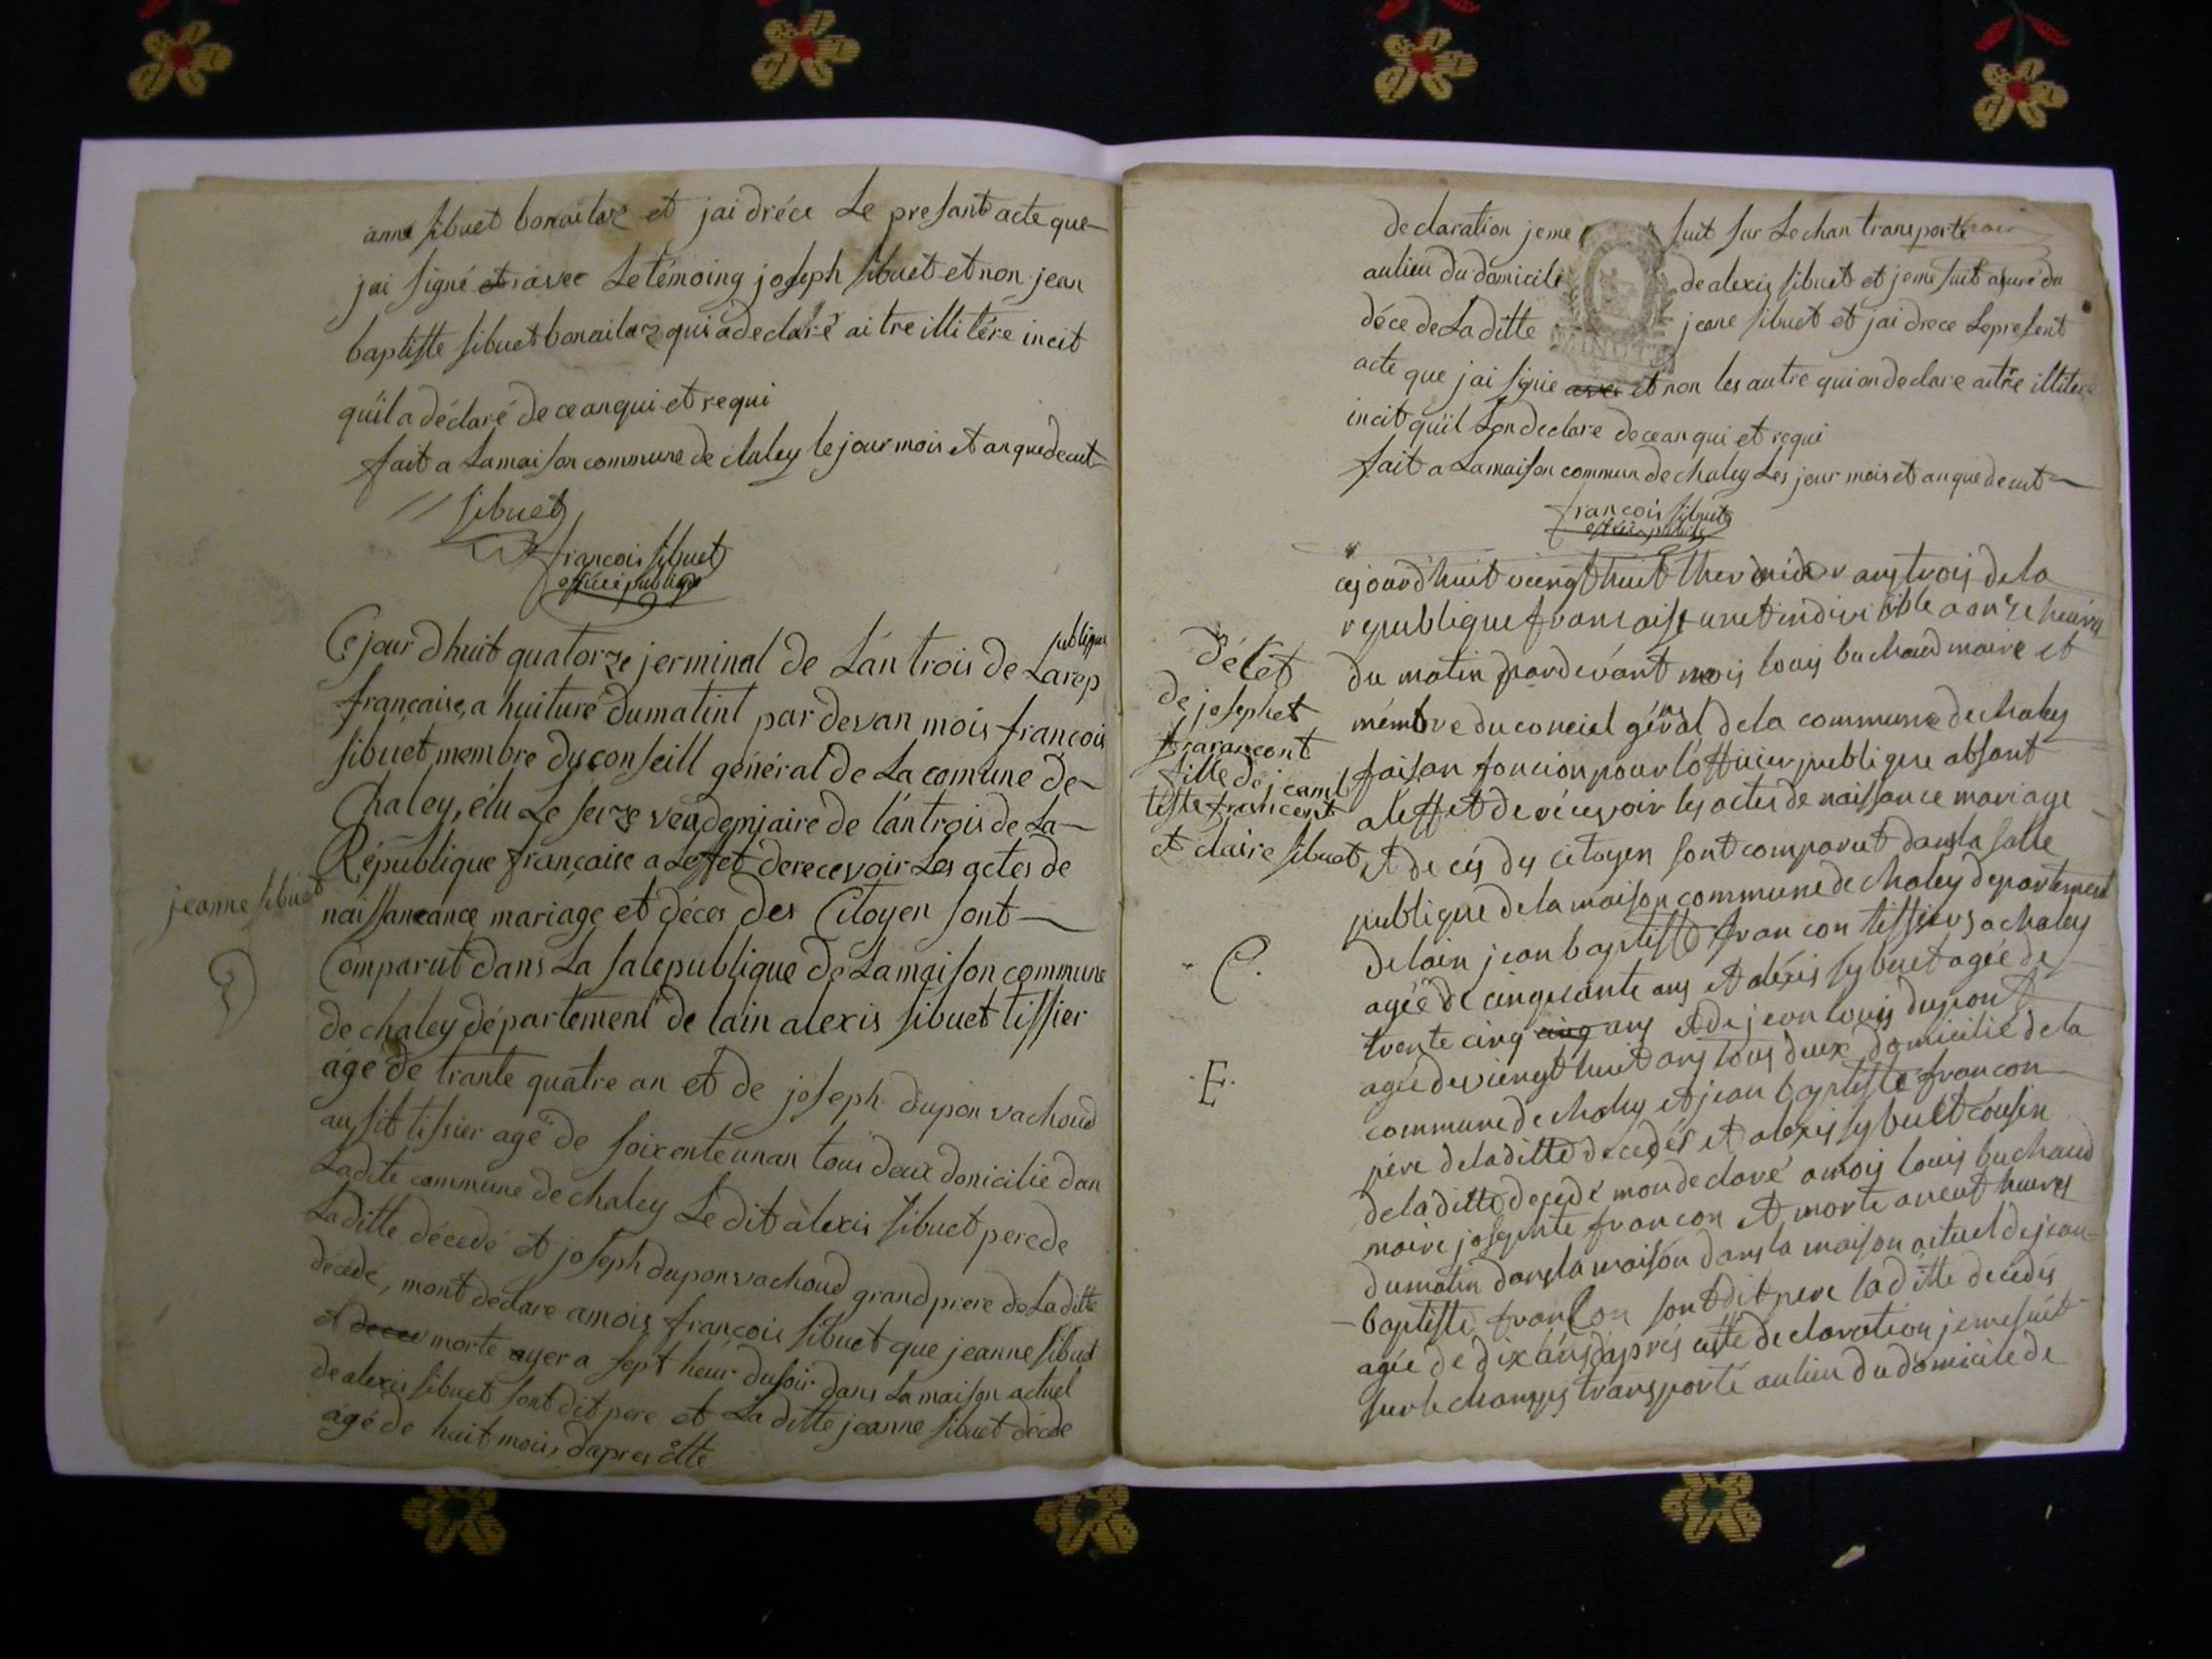 anne sibuet bonailaz et jai drécé Le presant acte que
jai signé et avec Le témoing joseph sibuet et non jean
baptiste sibuet bonailaz qui a declaré aitre illitére incit
qu'il a déclaré de ce anqui et requi
fait a Lamaison commune de chaley le jour mois et an que decut
sibuet
francois sibuet
officié publique
Cejourdhuit quatorze jerminal de Lán trois de Larep
publique
française, a huit uré dumatint par devan mois françois
sibuet membre du conseill général de La comune de
Chaley, élu Le seize vendemiaire de lán trois de La
République française a Leffet derecevoir Les actes de
jeanne sibuet
naissaneance mariage et déces des Citoyen sont
Comparut dans La salepublique de Lamaison commune
D
de chaley département de lain alexis sibuet tissier
ágé de trante quatre an et de joseph dupon vachoud
aussit tissier agé de soixente unan tous deux donicilié dan
Ladite commune de chaley Le dit àlexis sibuet perede
Laditte décedé et joseph duponvachoud grand prere de Laditte
décédé, mont déclare amois françois sibuet que jeanne sibuet
et deces morte ayer a sept heur dusoir dans La maison actuel
de alexis sibuet sont dit pere et La ditte jeanne sibuet décede
ágé de huit mois, d'apres cette
declaration jeme suit sur Lechan transporté
MINUTE
aulieu du domicile de alexis sibuet et jeme suit asuré du
déce de Laditte jeane sibuet et jai drece Lepresent
acte que jai signie avec et non les autre qui on declare aitre illitere
incit qu'il Lon declare de ce anqui et requi
fait a Lamaison commun de chaley Les jour mois et an que decut
francois sibuet
officié publique
cejourd'huit vieingt huit thermider ans trois de la
republique francoise une et indivisible a onze heures
délet
du matin pardevant mois louis buchaud maire et
de josephet
mémbre du conciel géral de la commune de chaley
frarancont
faisan foncion pour lófficier publique absant
fille de jeanb
a leffet de récevoir les actes de naissance mariage
tiste francont
et claire sibuet
et de cés des citoyen sont comparut dans la salle
publique de la maison commune de chaley departement
C.
de lain jean baptiste francon tissiers a chaley
agée de cinquante ans et aléxis sybuet agée de
trente cinq cinq ans et de jean louis dupont
E.
agée de vieingt huit ans tous deux domicilié de la
commune de chaley et jean baptiste francon
père de laditte decedés et alexis sybuet cousin
de laditte decedé mon declaré amois louis buchaud
maire josephte francon et morte a neuf heures
du matin dans la maison dans la maison actuel de jean
baptiste francon sont dit pere laditte decedés
agée de dix ans d'aprés cette declaration je me suit
sur le champs transporté au lieu du domicile de